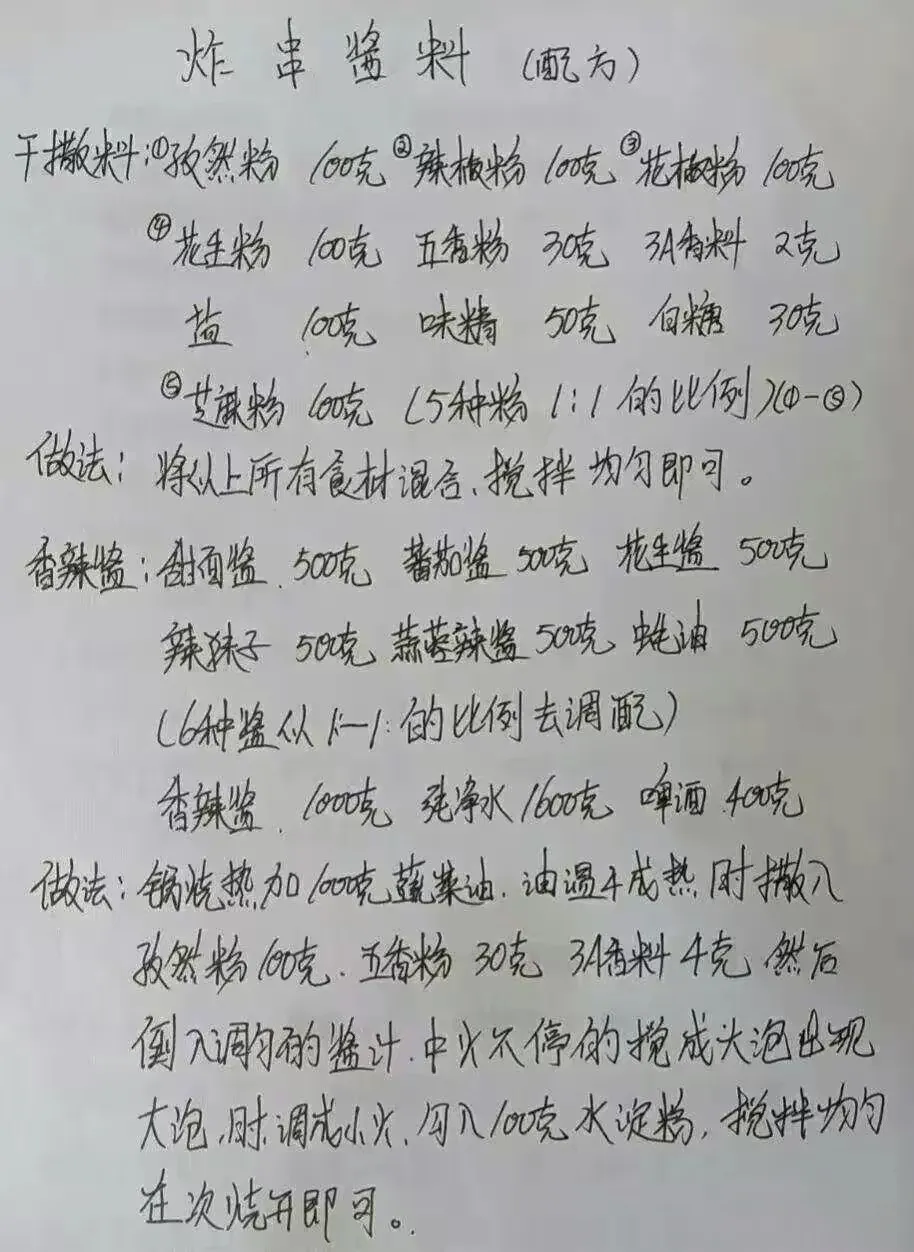 炸串酱料（配方）
干撒料：①孜然粉 100克 ②辣椒粉 100克 ③花椒粉 100克
④花生粉 100克 五香粉 30克 3A香料 2克
盐 100克 味精 50克 白糖 30克
⑤芝麻粉 100克（5种粉1:1的比例）（①-⑤）
做法：将以上所有食材混合、搅拌均匀即可。
香辣酱：甜面酱 500克 蕃茄酱 500克 花生酱 500克
辣妹子 500克 蒜蓉辣酱 500克 蚝油 500克
（6种酱以1:1的比例去调配）
香辣酱 1000克 纯净水 1600克 啤酒 400克
做法：锅烧热加1000克蔬菜油，油温4成热时撒入
孜然粉100克、五香粉30克 3A香料4克 然后
倒入调匀的酱汁，中火不停的搅成大泡出现
大泡时，调成小火，勾入100克水淀粉，搅拌均匀
在次烧开即可。